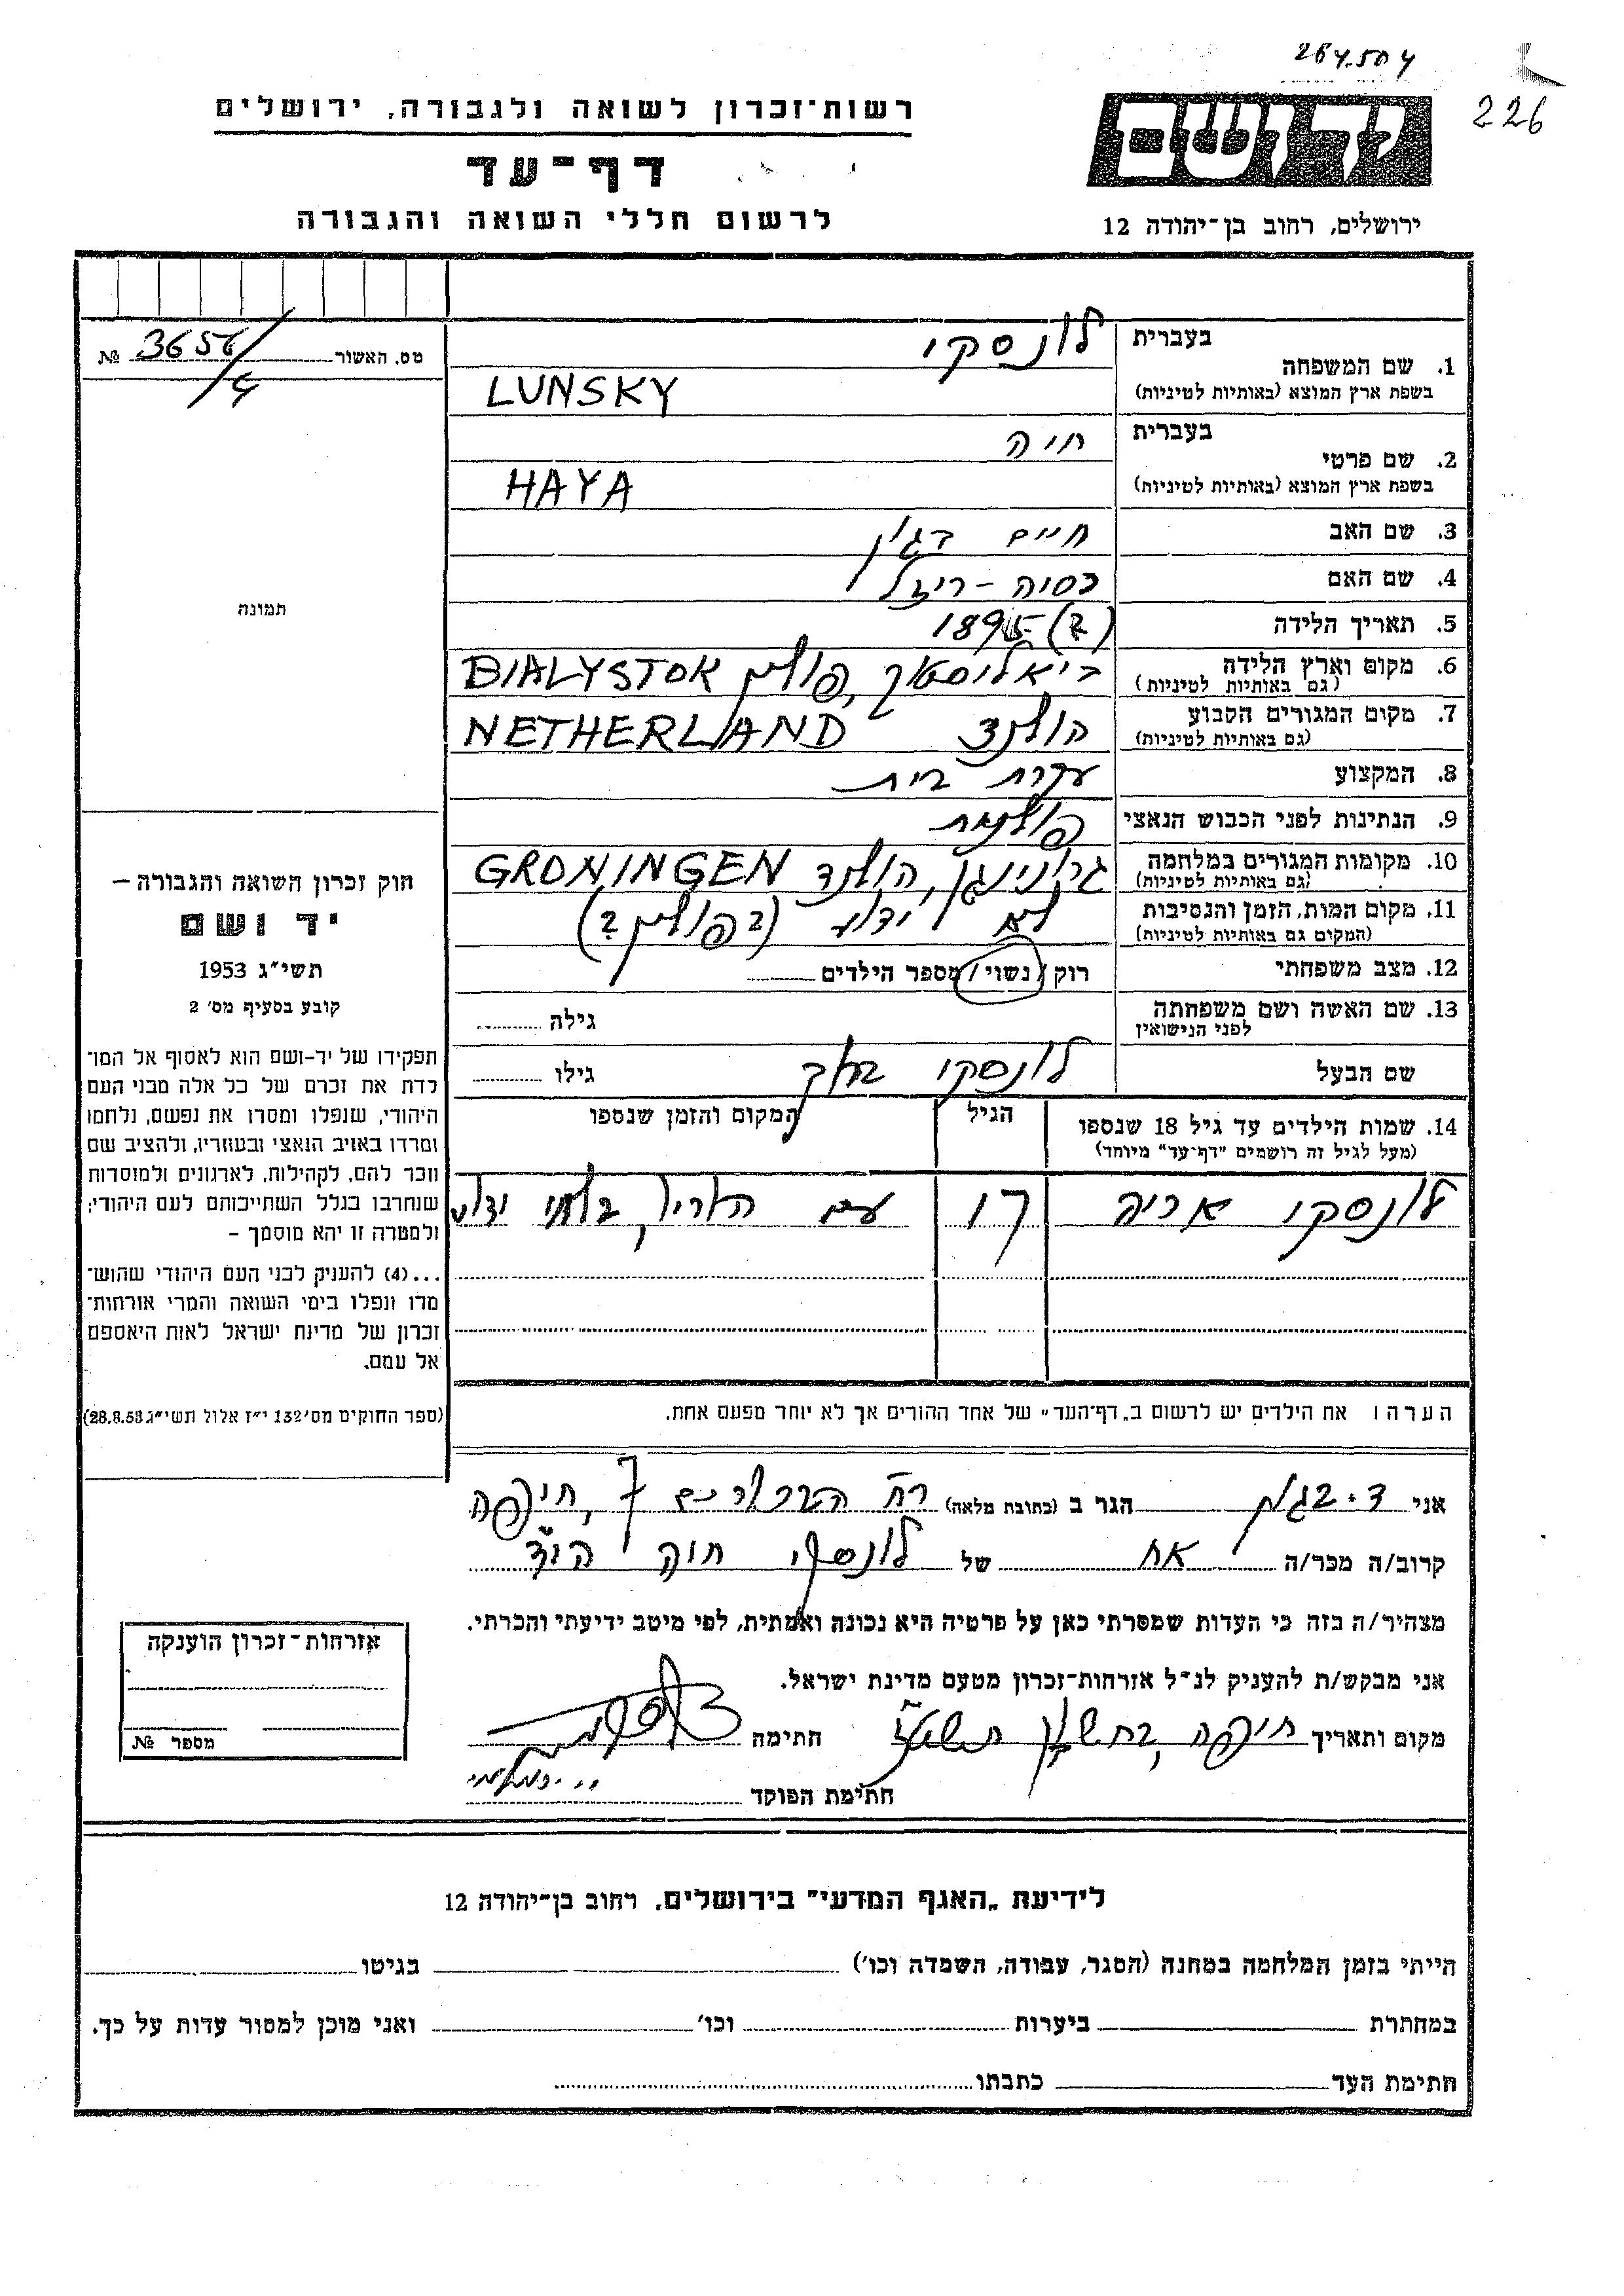 264.504
226
יד ושם
ירושלים, רחוב בן-יהודה 12
רשות-זכרון לשואה ולגבורה, ירושלים
דף-עד
לרשום חללי השואה והגבורה
מס. האשור 3656/4 №
1. שם המשפחה בעברית לונסקי
בשפת ארץ המוצא (באותיות לטיניות) LUNSKY
2. שם פרטי בעברית חיה
בשפת ארץ המוצא (באותיות לטיניות) HAYA
3. שם האב חיים
4. שם האם
5. תאריך הלידה (?) 1895
6. מקום וארץ הלידה (גם באותיות לטיניות) ביאליסטוק, פולין BIALYSTOK
7. מקום המגורים הקבוע (גם באותיות לטיניות) הולנד NETHERLAND
8. המקצוע עקרת בית
9. הנתינות לפני הכבוש הנאצי פולנית
10. מקומות המגורים במלחמה (גם באותיות לטיניות) גרונינגן, הולנד GRONINGEN
11. מקום המות, הזמן והנסיבות (המקום גם באותיות לטיניות) לא ידוע (בפולין?)
12. מצב משפחתי רוק / נשוי / מספר הילדים
13. שם האשה ושם משפחתה לפני הנישואין גילה
שם הבעל לונסקי ברוך גילו
14. שמות הילדים עד גיל 18 שנספו (מעל לגיל זה רושמים "דף-עד" מיוחד) הגיל המקום והזמן שנספו
לונסקי אריה 17 עם הוריו, בלתי ידוע
הערה: את הילדים יש לרשום ב„דף-העד" של אחד ההורים אך לא יותר מפעם אחת.
תמונה
חוק זכרון השואה והגבורה –
יד ושם
תשי"ג 1953
קובע בסעיף מס' 2
תפקידו של יד-ושם הוא לאסוף אל המו-
לדת את זכרם של כל אלה מבני העם
היהודי, שנפלו ומסרו את נפשם, נלחמו
ומרדו באויב הנאצי ובעוזריו, ולהציב שם
וזכר להם, לקהילות, לארגונים ולמוסדות
שנחרבו בגלל השתייכותם לעם היהודי;
ולמטרה זו יהא מוסמך –
...(4) להעניק לבני העם היהודי שהוש-
מדו ונפלו בימי השואה והמרי אזרחות-
זכרון של מדינת ישראל לאות היאספם
אל עמם.
(ספר החוקים מס' 132 י"ז אלול תשי"ג 28.8.53)
אני הגר ב (כתובת מלאה) 7, חיפה
קרוב/ה מכר/ה אח של לונסקי חיה הי"ד
מצהיר/ה בזה כי העדות שמסרתי כאן על פרטיה היא נכונה ואמתית, לפי מיטב ידיעתי והכרתי.
אני מבקש/ת להעניק לנ"ל אזרחות-זכרון מטעם מדינת ישראל.
מקום ותאריך חיפה, חתימה
חתימת הפוקד
אזרחות-זכרון הוענקה
מספר №
לידיעת „האגף המדעי" בירושלים, רחוב בן-יהודה 12
הייתי בזמן המלחמה במחנה (הסגר, עבודה, השמדה וכו') בגיטו
במחתרת ביערות וכו' ואני מוכן למסור עדות על כך.
חתימת העד כתבתו